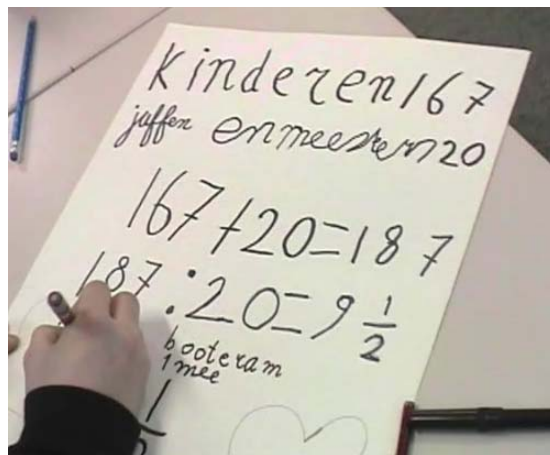 kinderen 167
juffen en meesters 20
167 + 20 = 187
187 : 20 = 9 1/2
booteram
1 mee
1